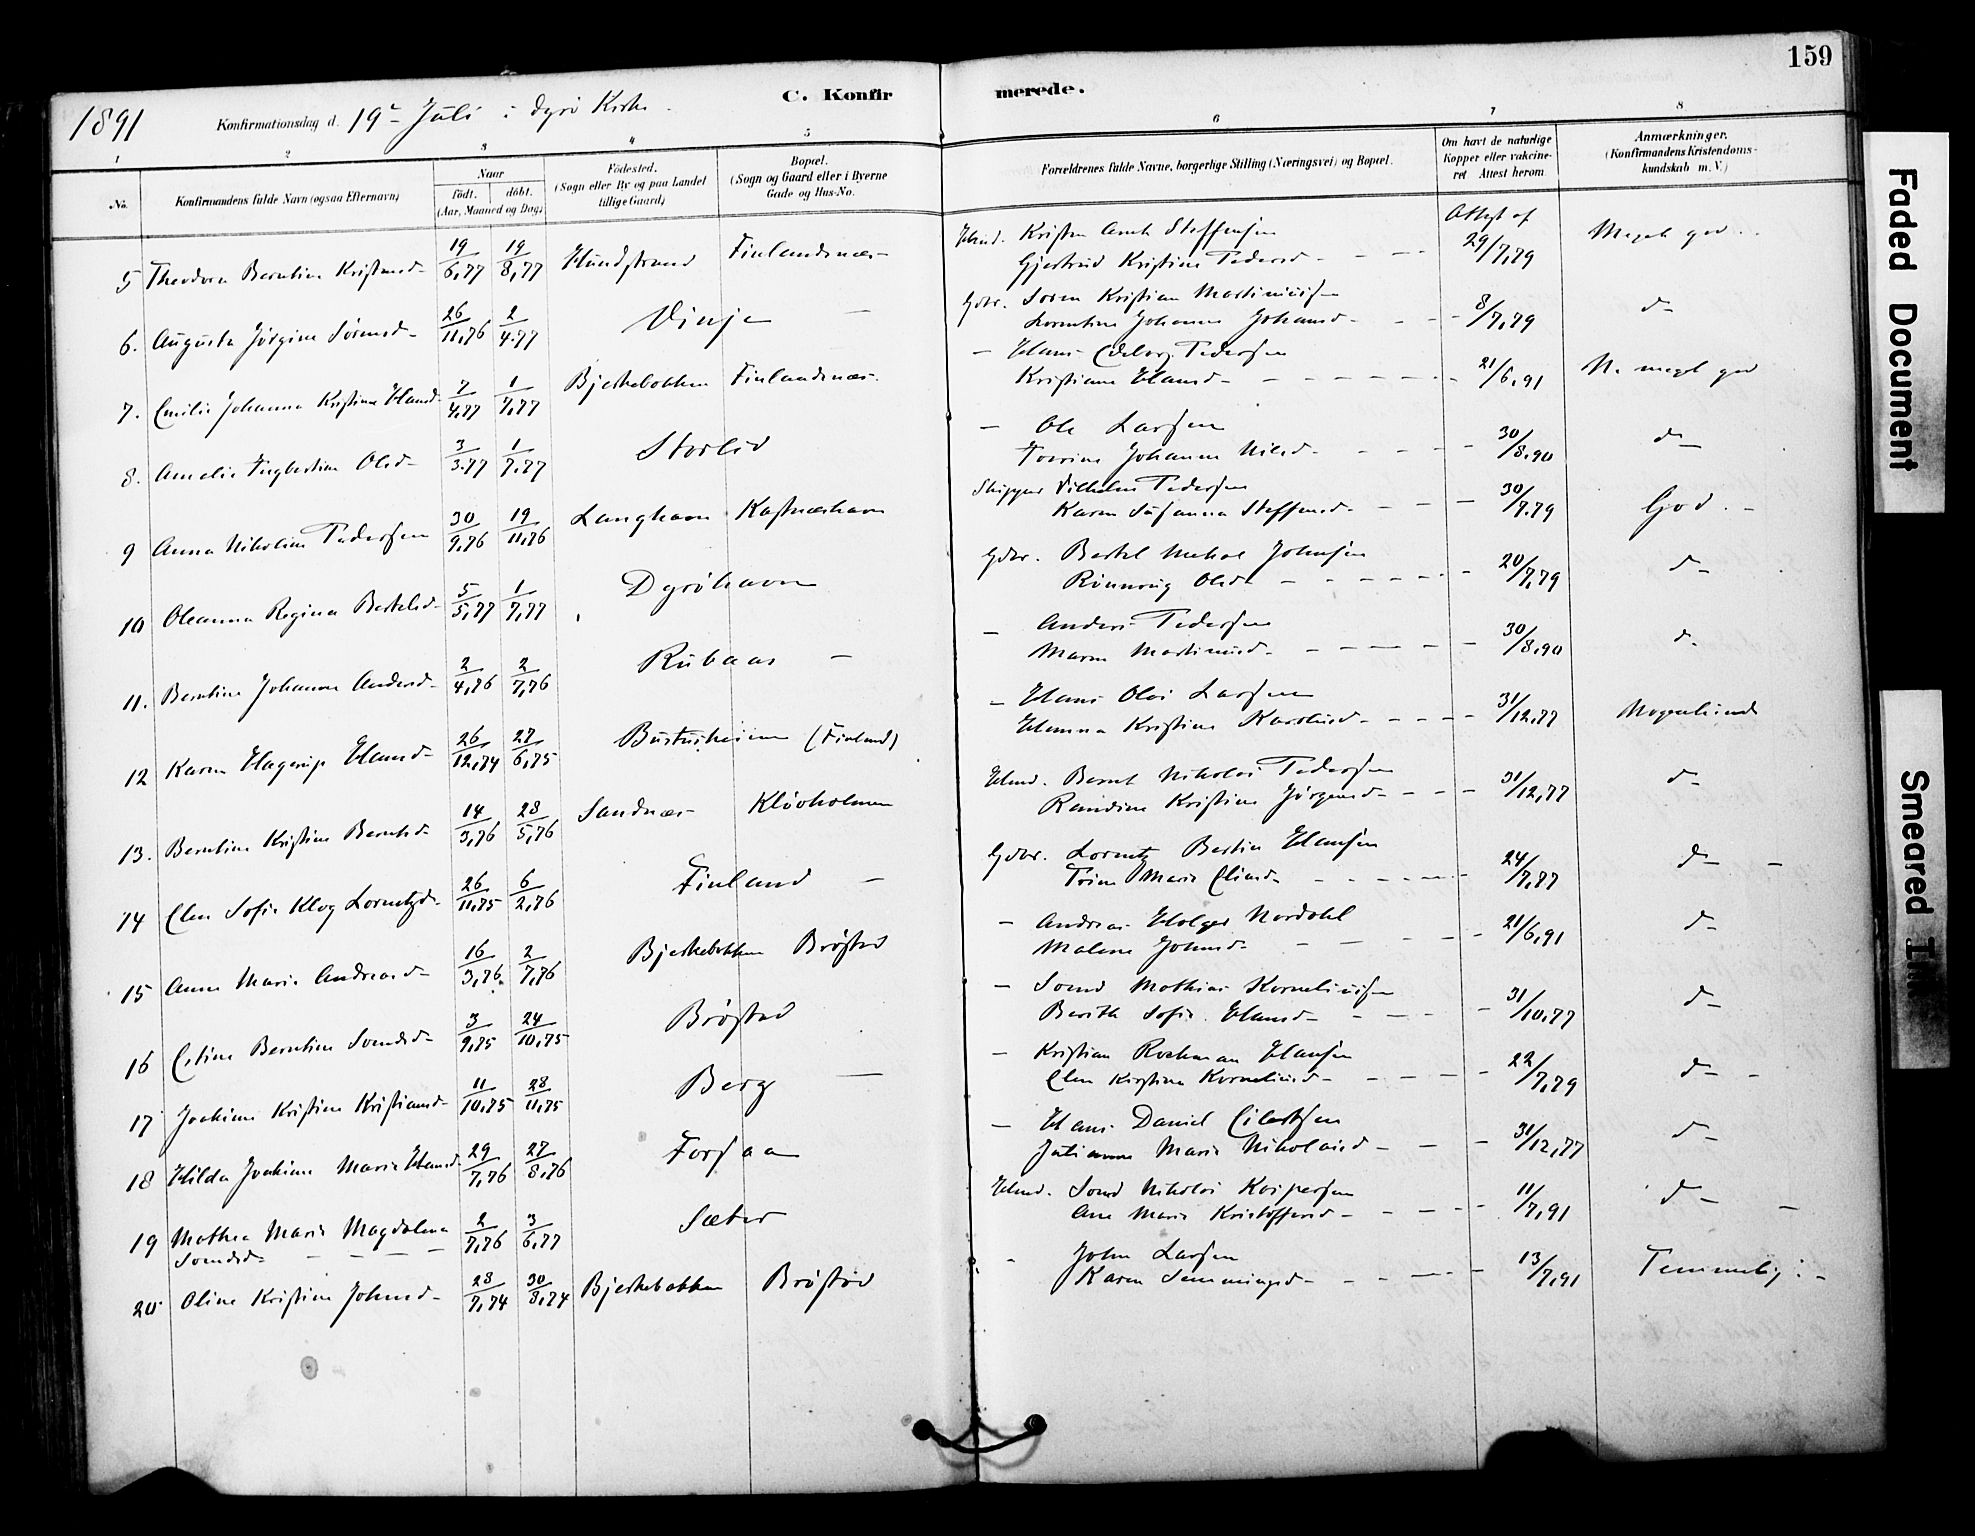 159
C. Konfirmerede.
1891 Konfirmationsdag d. 19de Juli i Dyrö Kirke.
1 2 3 4 5 6 7 8
No. Konfirmandens fulde Navn (ogsaa Efternavn) Naar födt. döbt. (Aar, Maaned og Dag) Födested. (Sogn eller By og paa Landet tillige Gaard) Bopæl. (Sogn og Gaard eller i Byerne Gade og Hus-No. Forældrenes fulde Navne, borgerlige Stilling (Næringsvei) og Bopæl. Om havt de naturlige Kopper eller vakcineret Attest herom Anmærkninger. (Konfirmandens Kristendomskundskab m. V.)
Attest af
5 Theodora Berntine Kristensd- 19/6,77 19/8,77 Hundstrand Finlandsnæs- Hmd. Kristen Arnt Steffensen 29/7,79 Meget god..
Gjertrud Kristine Pedersd-
6. Augusta Jörgine Sörensd- 26/11,76 2/4.77 Vinje — Gdbr. Sören Kristian Martinussen 8/7,79 d-
Lorentine Johanna Johansd-
7. Emilie Johanna Kristina Hansd- 7/4,77 1/7,77 Bjerkebakken Finlandsnæs. — Hans Edelarj Pedersen 21/6,91 Ns. meget god
Kristiane Hansd-
8. Amelie Ingbertine Olsd- 3/3.77 1/7,77 Storlid — Ole Larsen 30/8,90 d-
Torine Johanna Nilsd-
9 Anna Nikoline Pedersen 30/9,76 19/11,76 Langhavn Kastneshavn Skipper Vilhelm Pedersen 30/7,79 God. -
Karen Susanna Steffensd-
10 Oleanna Regina Bertelsd- 5/5,77 1/7,77 Dyröhavn Gdbr. Bertel Mikal Johnsen 20/7,79 d-
Rönnaug Olsd-
11. Berntine Johanna Andersd- 2/4,76 2/7,76 Rubaas — — Anders Pedersen 30/8,90 d-
Maren Martinusd-
12 Karen Hagerup Hansd- 26/12,74 27/6,75 Bustusheim (Finland) — Hans Olai Larsen 31/12,77 Mogenlunde
Hanna Kristine Karolusd-
13. Berntine Kristine Berntsd- 14/3,76 28/5,76 Sandnæs- Klövholmen Hmd. Bernt Nikolai Pedersen 31/12,77 d-
Randine Kristine Jörgensd-
14 Elen Sofie Klog Lorentzd- 26/11,75 6/2,76 Finland — Gdbr. Lorentz Bertin Hansen 24/7,77 d- -
Trine Marie Eliasd-
15 Anne Marie Andreasd- 16/3,76. 2/7,76 Bjerkebakken Bröstad — Andreas Holger Nordahl 21/6,91 d-
Malene Johnsd-
16 Eline Berntine Svendsd- 3/9,75 24/10,75 Bröstad — Svend Mathias Korneliussen 31/10,77 d-
Berith Sofie Hansd-
17 Joakime Kristine Kristiansd- 11/10,75 28/11,75 Berg — — Kristian Rochman Hansen 22/7,79 d- -
Elen Kirstina Korneliusd-
18 Hilda Joakime Marie Hansd- 29/7,76 27/8,76 Forsaa — Hans Daniel Eilertsen 31/12,77 d-
Julianna Marie Nikolaisd-
19 Mathea Marie Magdalena 2/7,76 3/6,77 Sæter Hmd. Svend Nikolai Kaspersen 11/7,91 d- —
Svendsd- — — — Ane Marie Kristoffersd-
20 Oline Kristine Johnsd- 28/7,74 30/8,74 Bjerkebakken Bröstad - John Larsen 13/7,91 Temmelig: -
Karen Semmingsd-
Faded Document
Smeared Ink